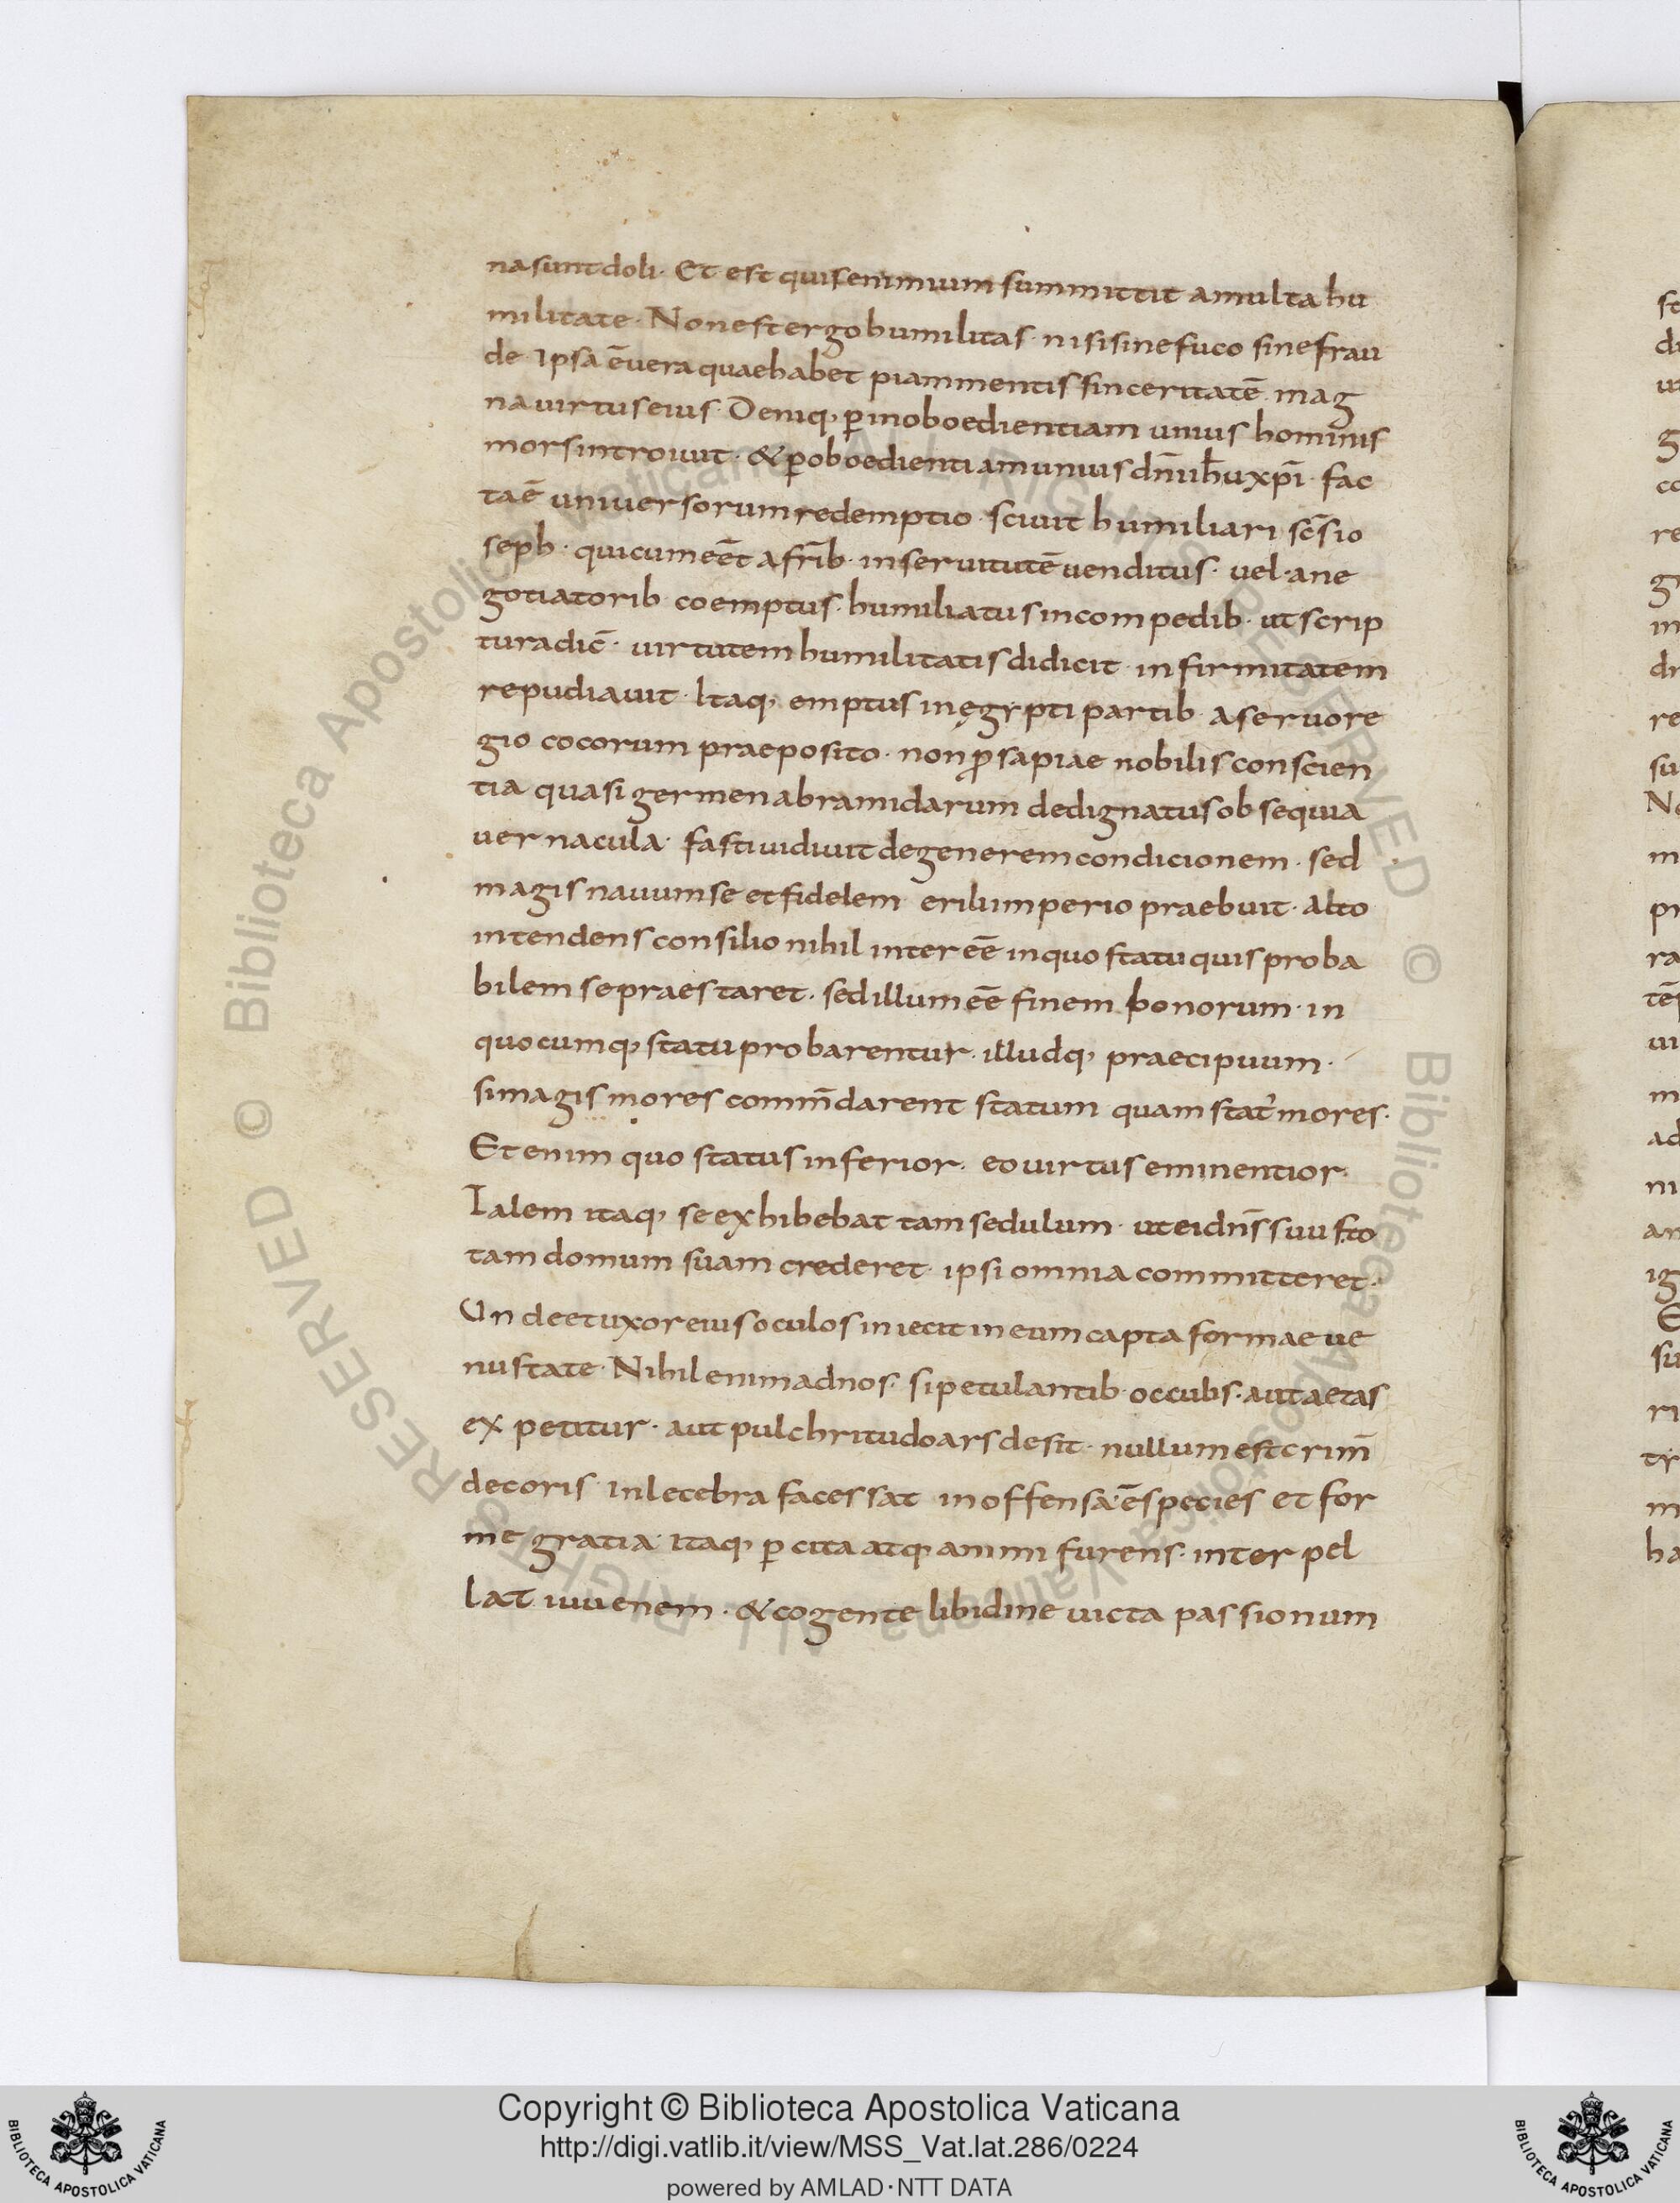 na sunt doli. Et est qui se nimium summittit a multa hu
militate. Non est ergo humilitas. nisi sine fuco sine frau
de. Ipsa ē vera quae habet piam mentis sinceritatē. mag
na uirtus eius. Deniq; ꝑ inoboedientiam unius hominis
mors introiuit. & ꝑ oboedientiam unius dn̄i ihu xp̄i. fac
ta ē uniuersorum redemptio. sciuit humiliari sc̄s io
seph. qui cum eēt a frīb. in seruitutē uenditus. uel a ne
gotiatorib. coemptus. humiliatus in compedib. ut scrip
tura dic̄. uirtutem humilitatis didicit. infirmitatem
repudiauit. Itaq; emptus in ęgypti partib. a seruo re
gio cocorum praeposito. non ꝓsapiae nobilis conscien
tia quasi germen abramidarum dedignatus obsequia
uernacula. fastiuidiuit degenerem condicionem. sed
magis nauum se et fidelem erili imperio praebuit. alto
intendens consilio nihil inter eē in quo statu quis proba
bilem se praestaret. sed illum eē finem bonorum. in
quocumq; statu probarentur. illudq; praecipuum.
si magis mores comm̄darent statum quam stat' mores.
Etenim quo status inferior. eo uirtus eminentior.
Talem itaq; se exhibebat tam sedulum. ut ei dn̄s suus to
tam domum suam crederet. ipsi omnia committeret.
Unde et uxor eius oculos iniecit in eum capta formae ue
nustate. Nihil enim ad nos. si petulantib. occulis. aut aetas
expetitur. aut pulchritudo ars desit. nullum est crim̄
decoris inlecebra facessat inoffensa ē species et for
me gratia. itaq; ꝑcita atq; animi furens. interpel
lat iuuenem. & cogente libidine uicta passionum
Copyright © Biblioteca Apostolica Vaticana
http://digi.vatlib.it/view/MSS_Vat.lat.286/0224
powered by AMLAD·NTT DATA
BIBLIOTECA APOSTOLICA VATICANA
BIBLIOTECA APOSTOLICA VATICANA